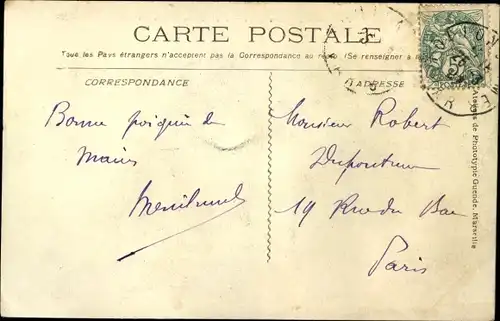 CARTE POSTALE
Tous les Pays étrangers n'acceptent pas la Correspondance au (Se renseigner à
CORRESPONDANCE
ADRESSE
Bonne poignée de
mains
Monsieur Robert
19 Rue du Bac
Paris
de Phototypie Guende, Marseille